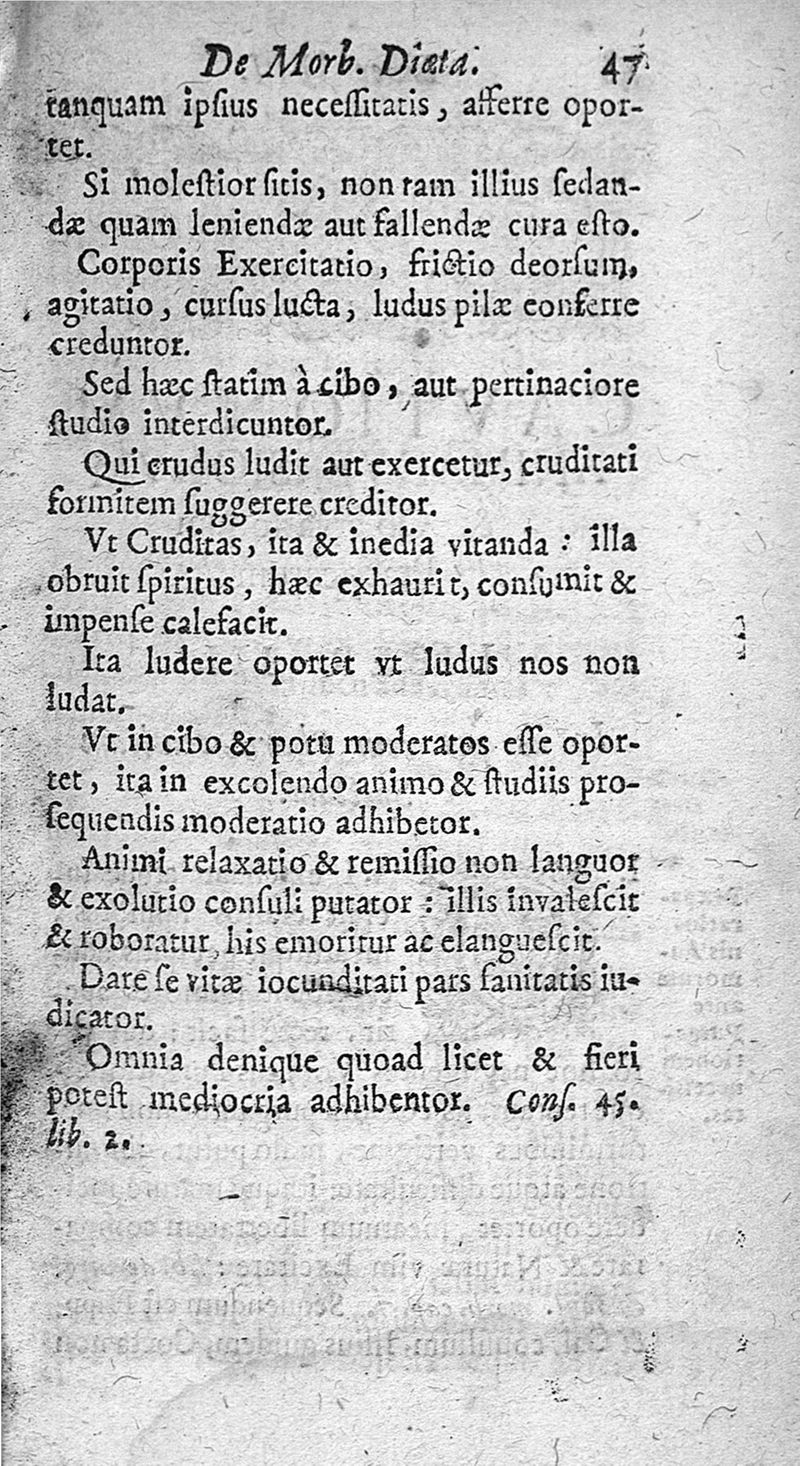 De Morb. Diæta. 47
tanquam ipſius neceſſitatis, afferre opor-
tet.
Si moleſtior ſitis, non tam illius ſedan-
dæ quam leniendæ aut fallendæ cura eſto.
Corporis Exercitatio, frictio deorſum,
agitatio, curſus lucta, ludus pilæ conferre
creduntor.
Sed hæc ſtatim à cibo, aut pertinaciore
ſtudio interdicuntor.
Qui crudus ludit aut exercetur, cruditati
formitem ſuggerere creditor.
Vt Cruditas, ita & inedia vitanda : illa
obruit ſpiritus, hæc exhaurit, conſumit &
impenſe calefacit.
Ita ludere oportet vt ludus nos non
ludat.
Vt in cibo & potu moderatos eſſe opor-
tet, ita in excolendo animo & ſtudiis pro-
ſequendis moderatio adhibetor.
Animi relaxatio & remiſſio non languor
& exolutio conſuli putator : illis invaleſcit
& roboratur, his emoritur ac elangueſcit.
Dare ſe vitæ iocunditati pars ſanitatis iu-
dicator.
Omnia denique quoad licet & fieri
poteſt mediocria adhibentor. Conſ. 45.
lib. 2.